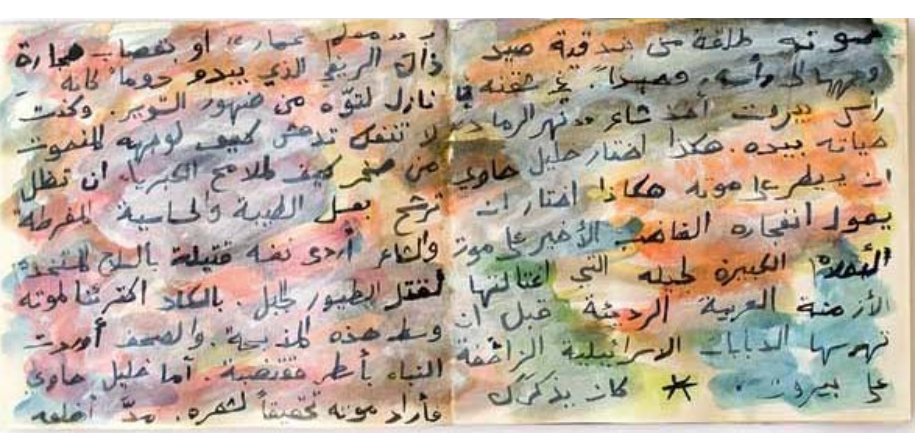 طلقة من بندقية صيد
وجهها الى رأسه، وحيداً. في شقته في
رأس بيروت أخذ شاعر «نهر الرماد»
حياته بيده. هكذا اختار خليل حاوي
ان يسيطر على موته هكذا اختار ان
يقول انفجاره الغاضب الأخير على موت
الأحلام الكبيرة لجيله التي اغتالتها
الأزمنة العربية الرديئة قبل ان
تهرسها الدبابات الاسرائيلية الزاحفة
على بيروت. * كان يذكرك
بـ «معلم عمار» او بقصاب حجارة
ذاك الريفي الذي يبدو دوماً كأنه
نازل لتوّه من ضهور الشوير. وكنت
لا تنفك تدهش كيف لوجهه المنحوت
من صخر كيف لملامح الكبرياء ان تظل
ترشح بعسل الطيبة والحساسية المفرطة
والشاعر أردى نفسه قتيلة بالسلاح
لقتل الطيور بالكاد اكترثنا لموته
وسط هذه المذبحة. والصحف أوردت
النبأ بأسطر مقتضبة. أما خليل حاوي
فأراد موته تحقيقاً لشعره. مدّ أضلعه